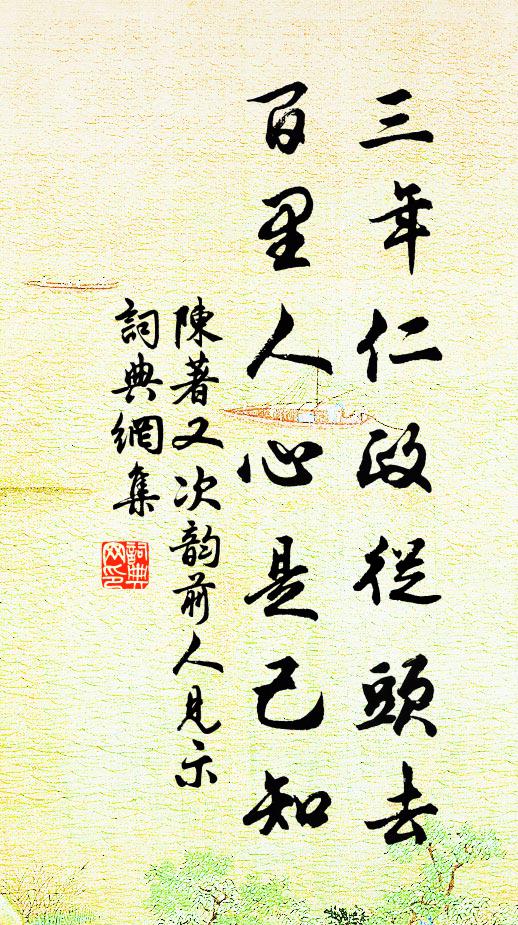 三年仁政從頭去
百里人心是已知
陳著又次韵前人見示
詞典網集
詞典
网印